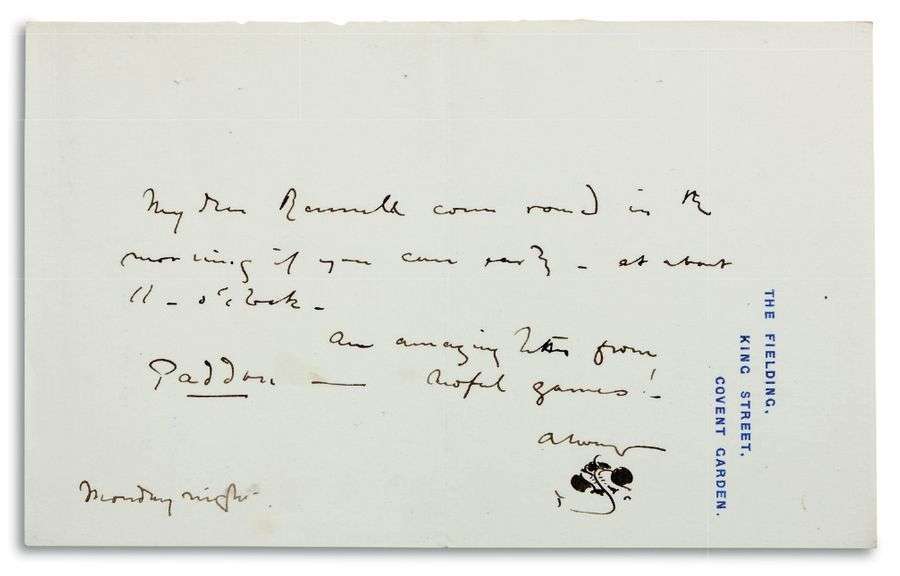 My dear Rennell come round in the
morning if you can early - at about
11 - o'clock -
An amazing letter from
Paddon — games! -
Always
Monday night -
THE FIELDING,
KING STREET,
COVENT GARDEN.